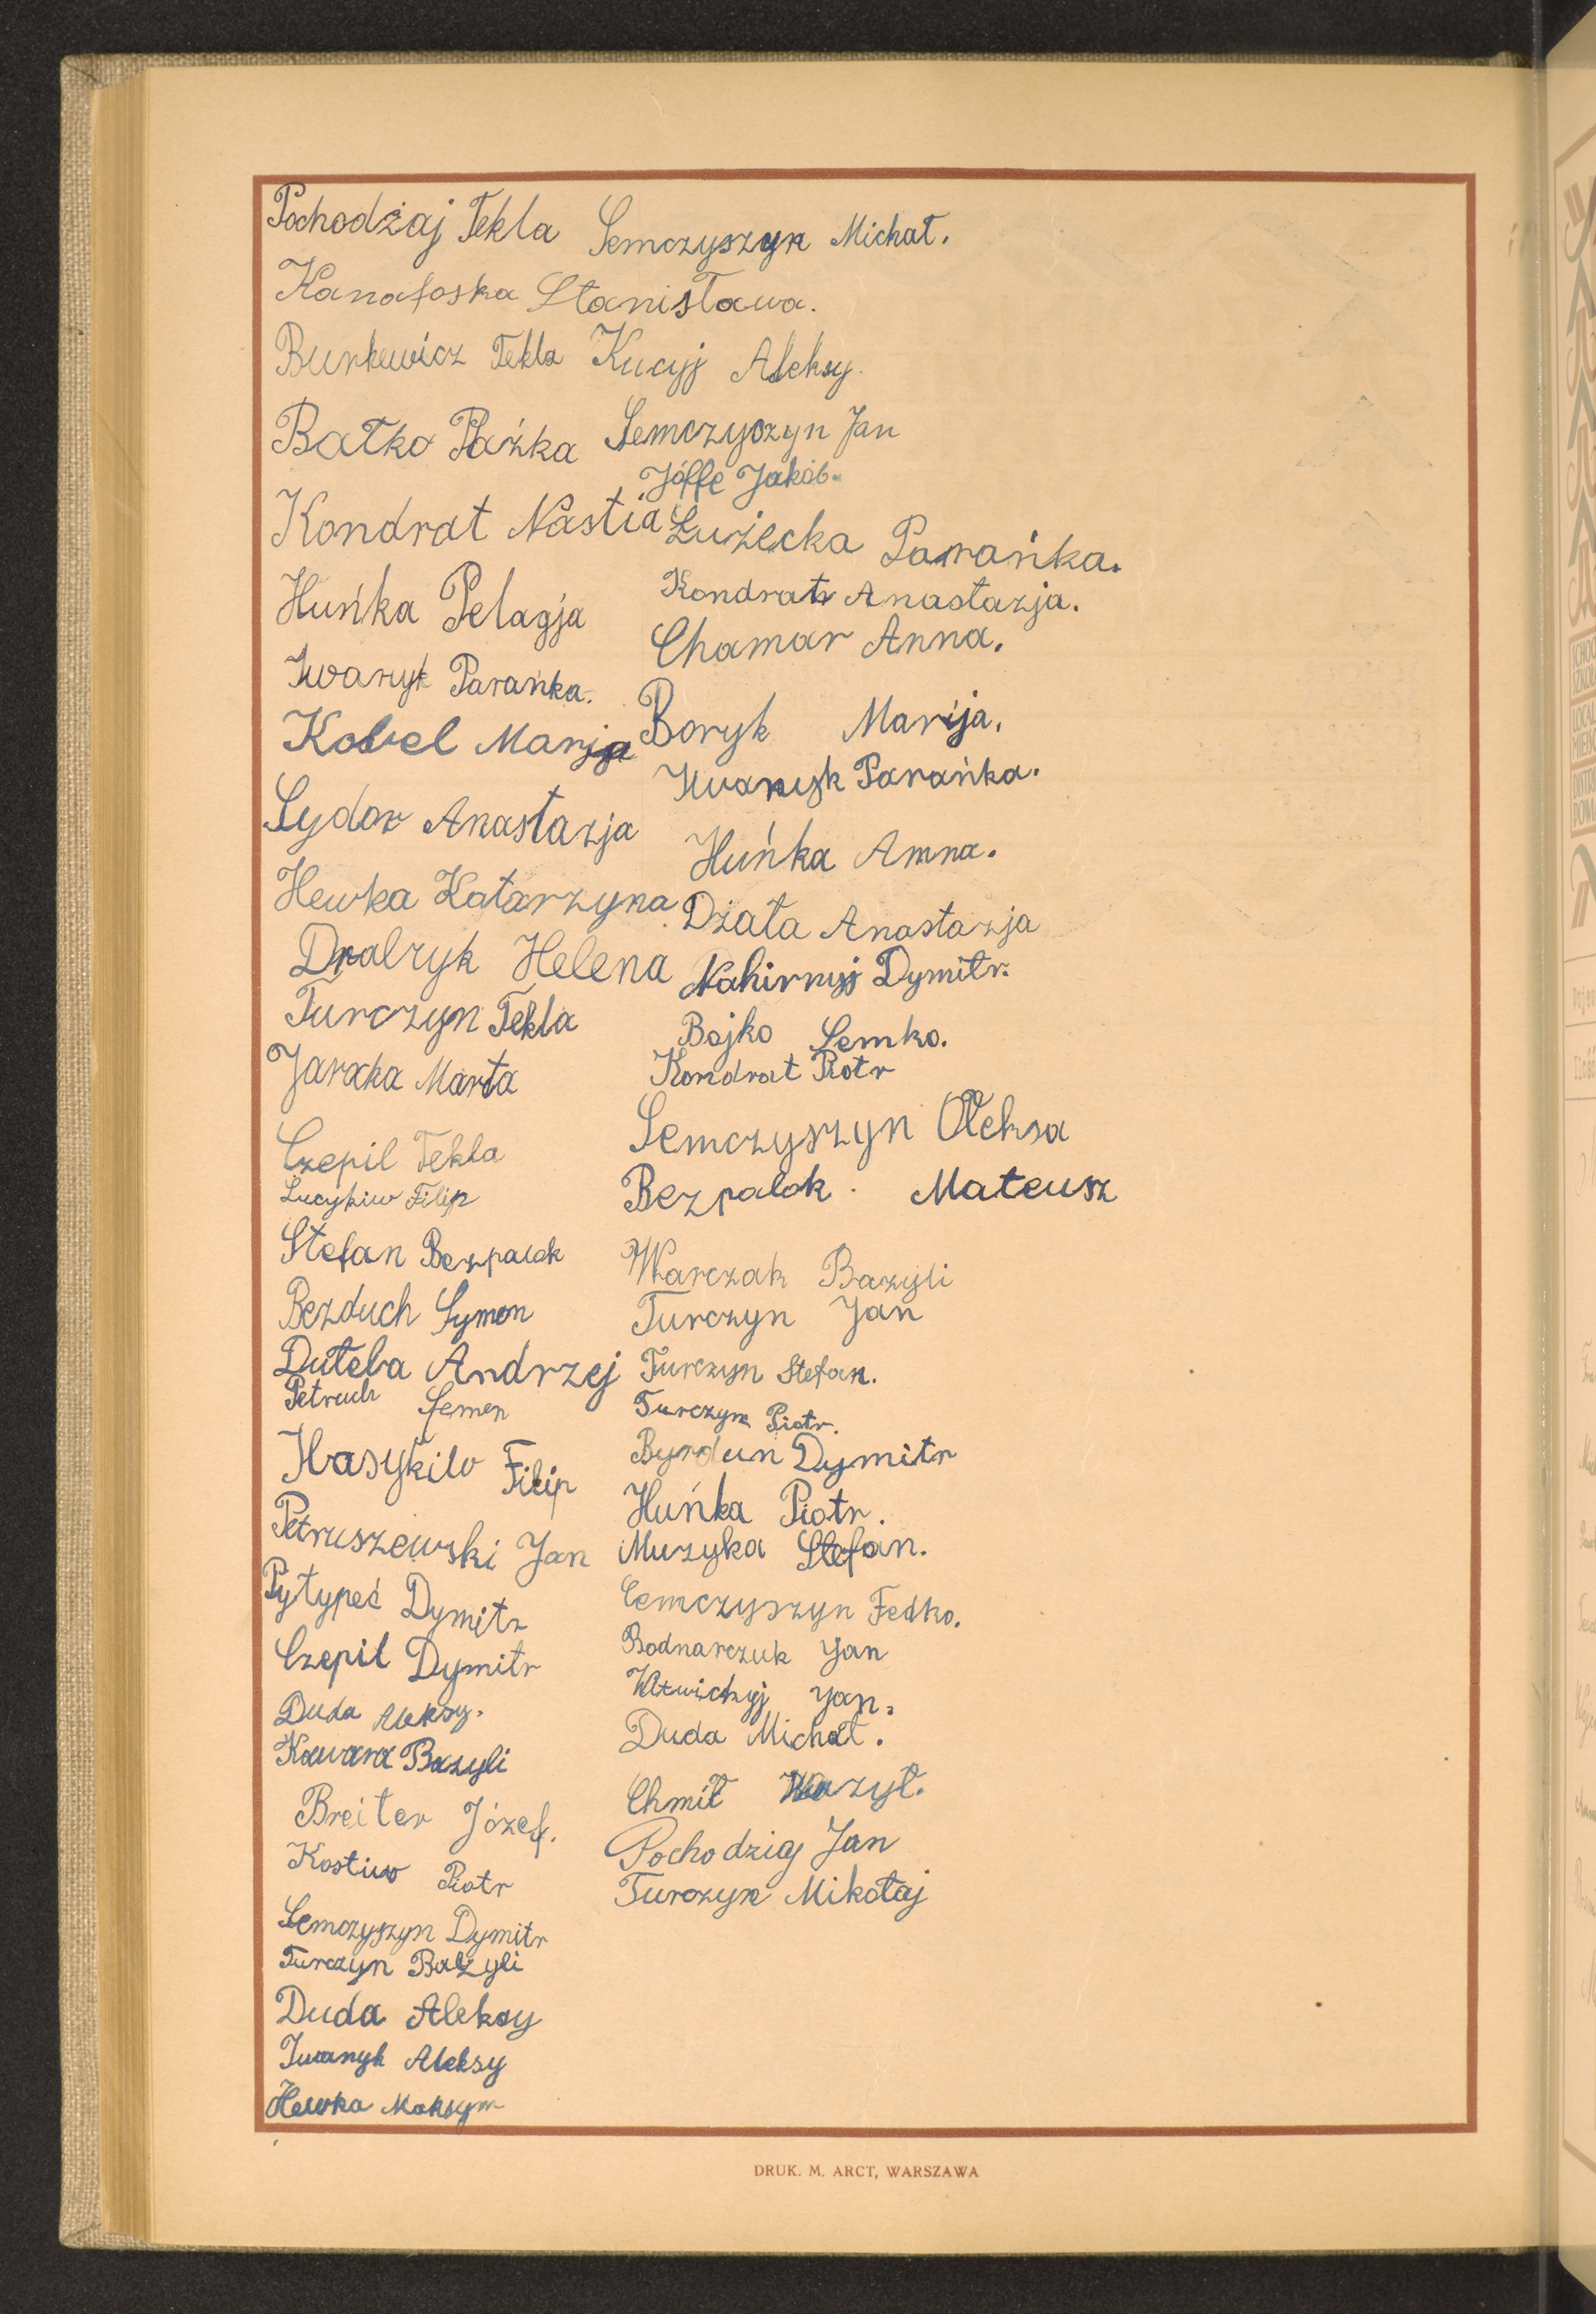 Pochodżaj Tekla
Kanafoska Stanisława.
Burkewicz Tekla
Batko Pańka
Kondrat Nastia
Huńka Pelagja
Iwaryk Parańka.
Kobel Marja
Sydor Anastazja
Hewka Katarzyna
Dralryk Helena
Turczyn Tekla
Jaracka Marta
Czepil Tekla
Lucykiw Filip
Stefan Bezpalok
Bezduch Symon
Duteba Andrzej
Petruch Semen
Hasykiw Filip
Petruszewski Jan
Pytypeć Dymitr
Czepil Dymitr
Duda Aleksy.
Kawara Bazyli
Breiter Józef.
Kostiw Piotr
Semczyszyn Dymitr
Turczyn Bazyli
Duda Aleksy
Iwanyk Aleksy
Hewka Maksym
Semczyszyn Michał.
Kucyj Aleksy.
Semczyszyn Jan
Jóffe Jakób.
Łużecka Parańka.
Kondrat Anastazja.
Chamar Anna.
Boryk Marija.
Iwanyk Parańka.
Huńka Anna.
Dżała Anastazja
Nahirnyj Dymitr.
Bojko Semko.
Kondrat Piotr
Semczyszyn Ołeksa
Bezpalok. Mateusz
Warczak Bazyli
Turczyn Jan
Turczyn Stefan.
Turczyn Piotr.
Byrdun Dymitr
Huńka Piotr.
Muzyka Stefan.
Cemczyszyn Fedko.
Bodnarczuk Jan
Jan.
Duda Michał.
Chmil Wazyl.
Pochodziaj Jan
Turczyn Mikołaj
DRUK. M. ARCT, WARSZAWA